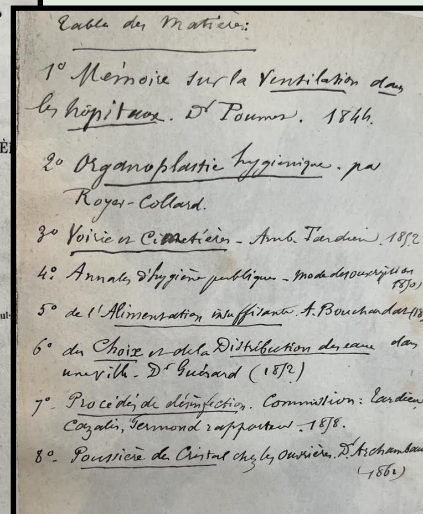 Table des Matières:
1º Mémoire sur la Ventilation dans
les hôpitaux. Dr Poumet. 1844.
2º Organoplastie hygiénique. par
Royer-Collard.
3º Voirie et Cimetières - Amb. Tardieu. 1852
4º Annales d'hygiène publique - mode de souscription
5º de l'Alimentation insuffisante. A. Bouchardat
6º du Choix et de la Distribution des eaux dans
une ville. Dr Guérard (1852)
7º Procédés de désinfection. Commission: Tardieu
Cazalis, rapporteur. 1858.
8º Poussière de Cristal chez les ouvrières. Dr Archambault
(1862)